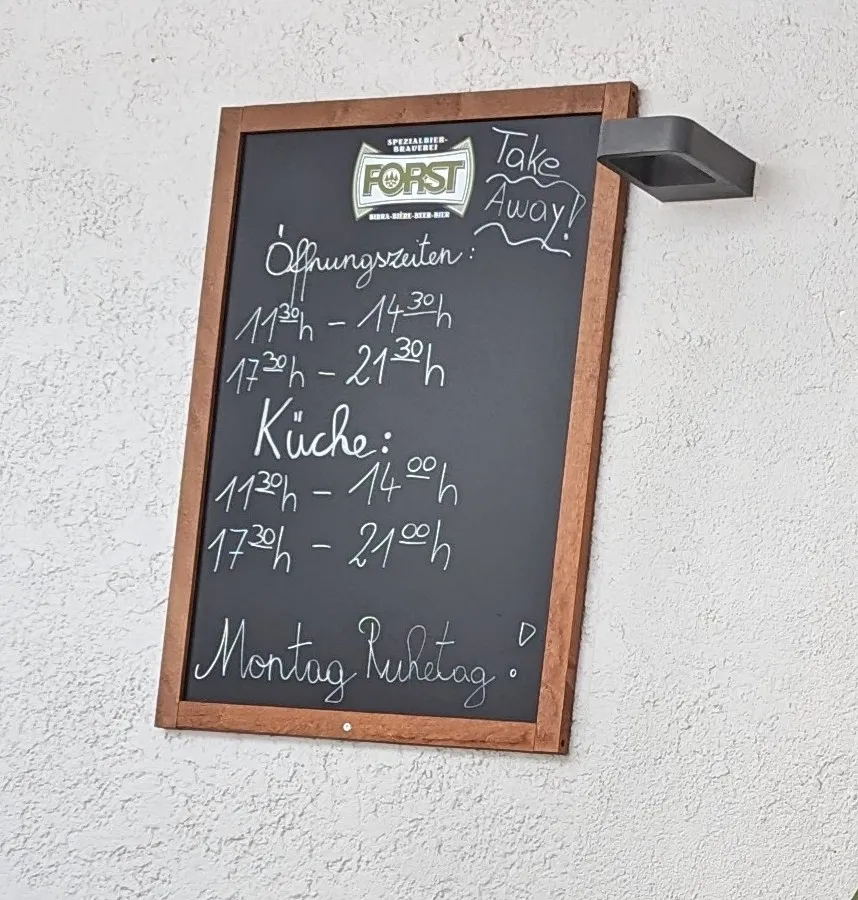 SPEZIALBIER-
BRAUEREI
FORST
BIRRA-BIÈRE-BEER-BIER
Take
Away!
Öffnungszeiten:
11³⁰h - 14³⁰h
17³⁰h - 21³⁰h
Küche:
11³⁰h - 14⁰⁰h
17³⁰h - 21⁰⁰h
Montag Ruhetag!